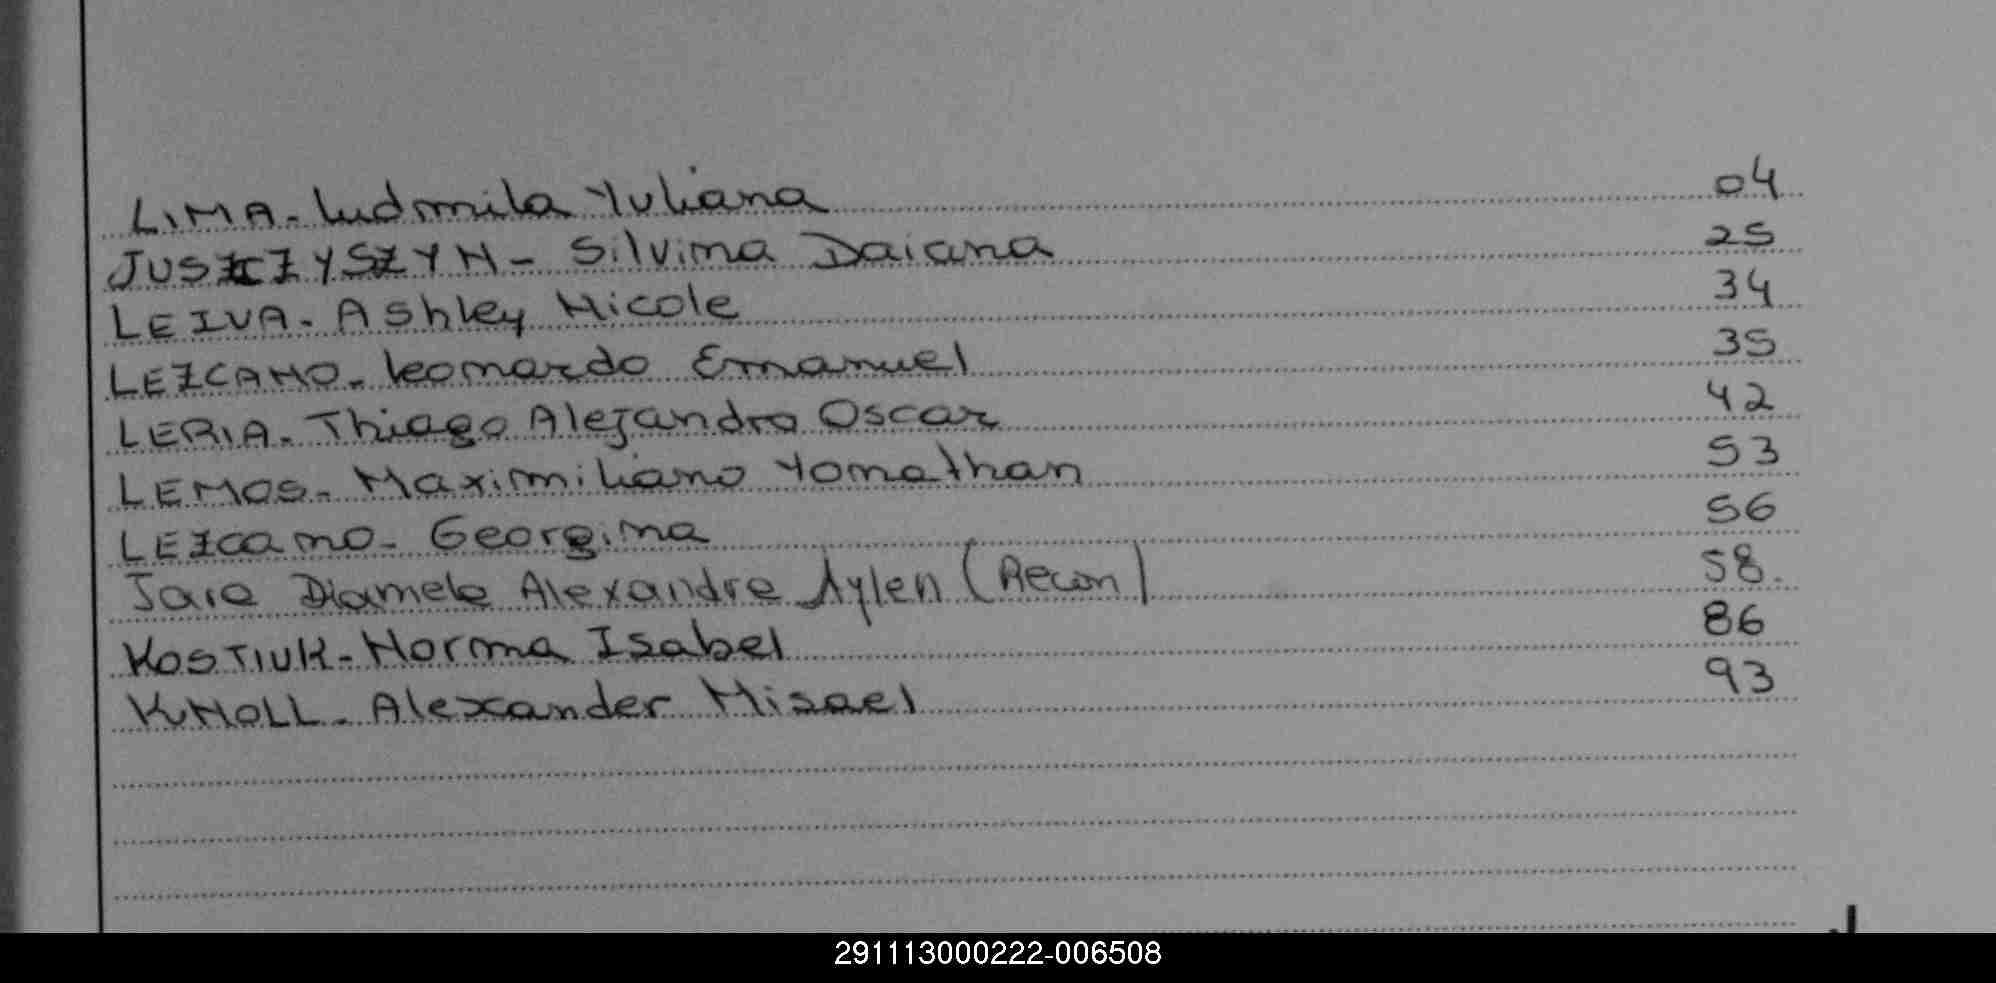 LIMA - Ludmila Yuliana 04
JUSZCZYSZYN - Silvina Daiana 25
LEIVA - Ashley Nicole 34
LEZCANO - Leonardo Emanuel 35
LERIA - Thiago Alejandro Oscar 42
LEMOS - Maximiliano Yonathan 53
LEZCANO - Georgina 56
Jara Diamela Alexandra Aylen (Recon) 58.
KOSTIUK - Norma Isabel 86
KNOLL - Alexander Misael 93
291113000222-006508